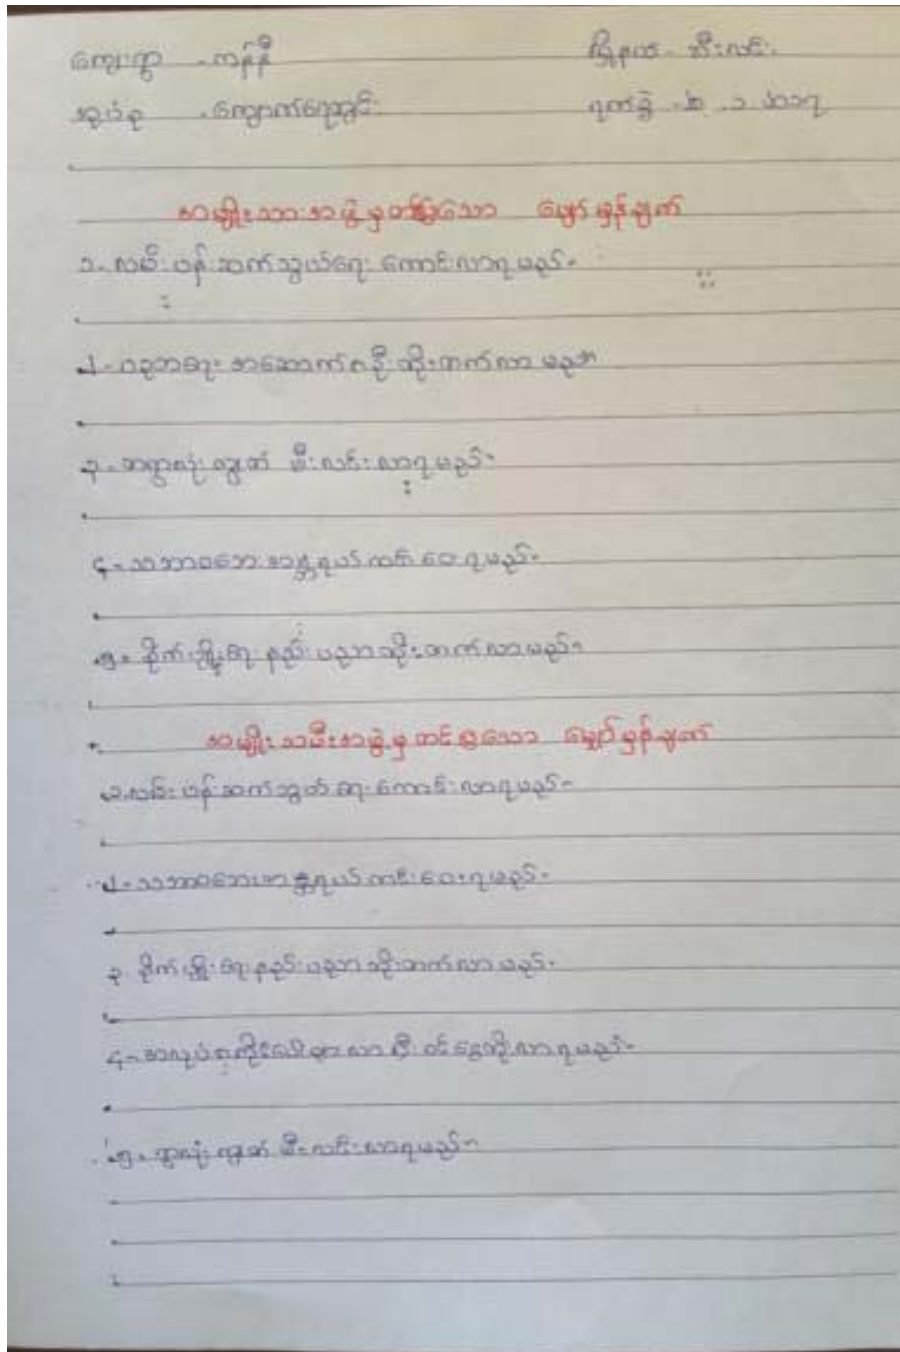 ကျေးရွာ - ကန်နီ မြို့နယ် - သီးလင်း
အုပ်စု - ကျောက်ရေတွင်း ရက်စွဲ - ၂ ၁ ၂၀၁၇
အမျိုးသားအဖွဲ့မှတင်ပြသော မျှော်မှန်းချက်
၁- လမ်းပန်းဆက်သွယ်ရေးကောင်းလာရမည်။
၂- ပညာရေးအဆောက်အဦးတိုးတက်လာမည်။
၃- တရွာလုံးကျွတ် မီးလင်းလာရမည်။
၄- သဘာဝဘေးအန္တရယ်ကင်းဝေးရမည်။
၅- စိုက်ပျိုးရေးနည်းပညာတိုးတက်လာမည်။
အမျိုးသမီးအဖွဲ့မှတင်ပြသော မျှော်မှန်းချက်
၁. လမ်းပန်းဆက်သွယ်ရေးကောင်းလာရမည်။
၂- သဘာဝဘေးအန္တရယ်ကင်းဝေးရမည်။
၃. စိုက်ပျိုးရေးနည်းပညာတိုးတက်လာမည်။
၄- အလုပ်အကိုင်ပေါများလာပြီးဝင်ငွေတိုးလာရမည်။
၅- ရွာလုံးကျွတ် မီးလင်းလာရမည်။